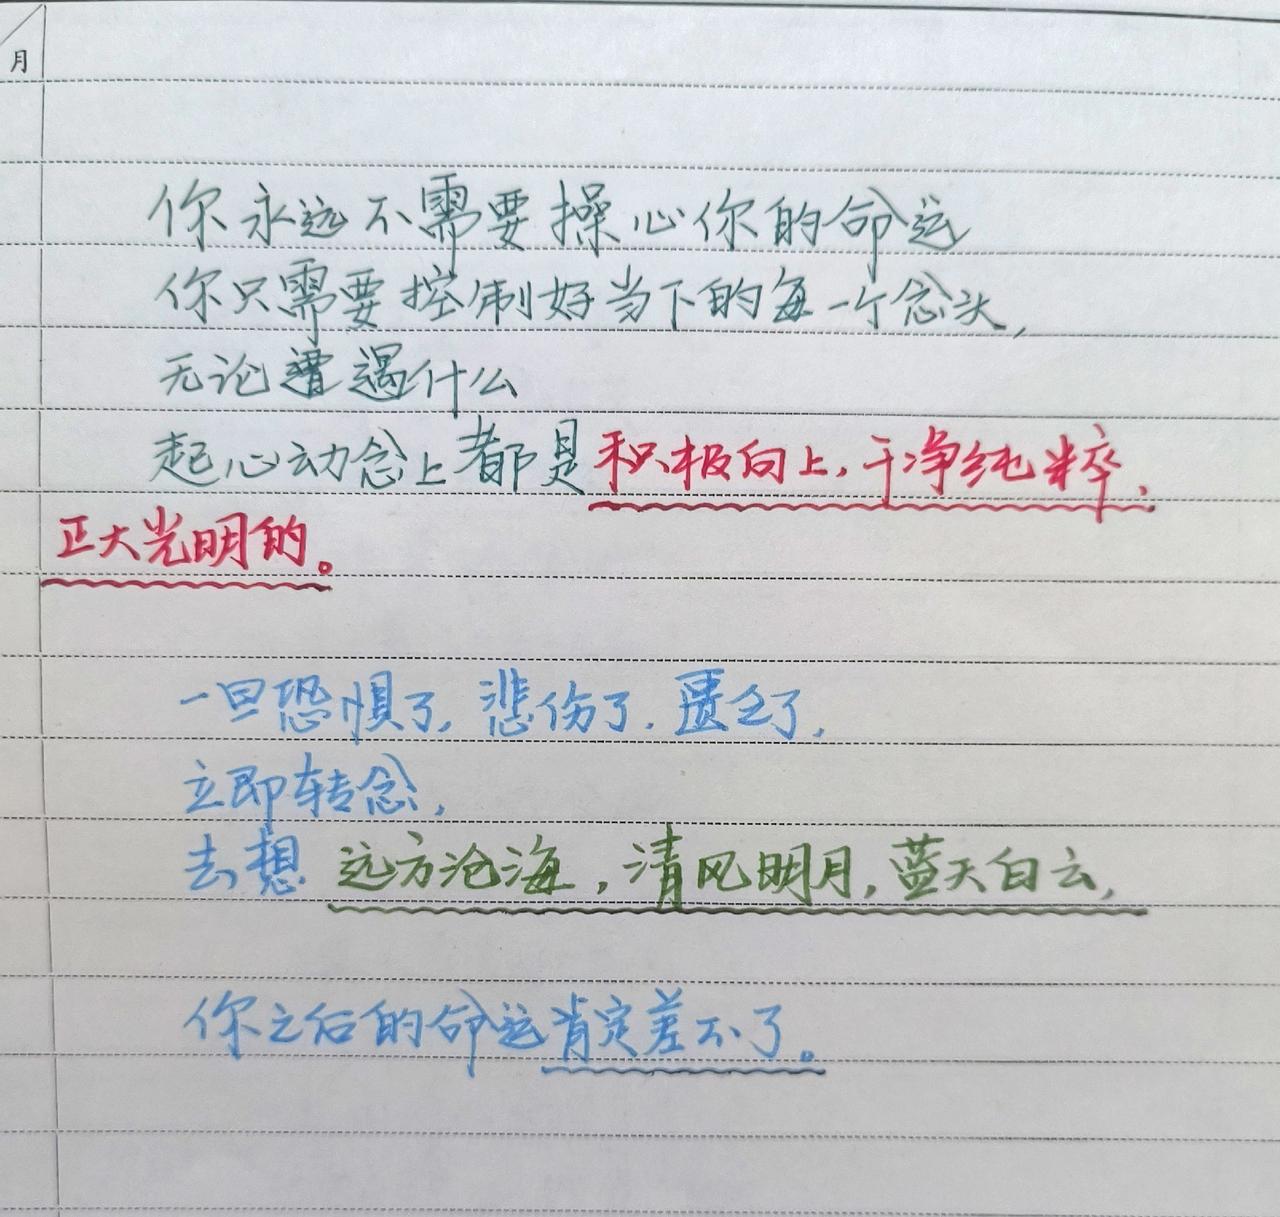 月
你永远不需要操心你的命运
你只需要控制好当下的每一个念头,
无论遭遇什么
起心动念上都是积极向上,干净纯粹,
正大光明的。
一旦恐惧了,悲伤了,匮乏了,
立即转念,
去想 远方沧海,清风明月,蓝天白云,
你之后的命运肯定差不了。